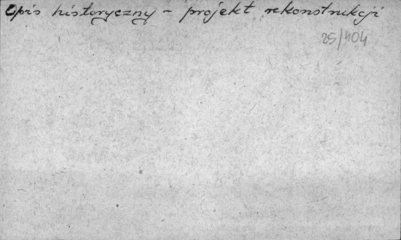 Opis historyczny - projekt rekonstrukcji
25/404